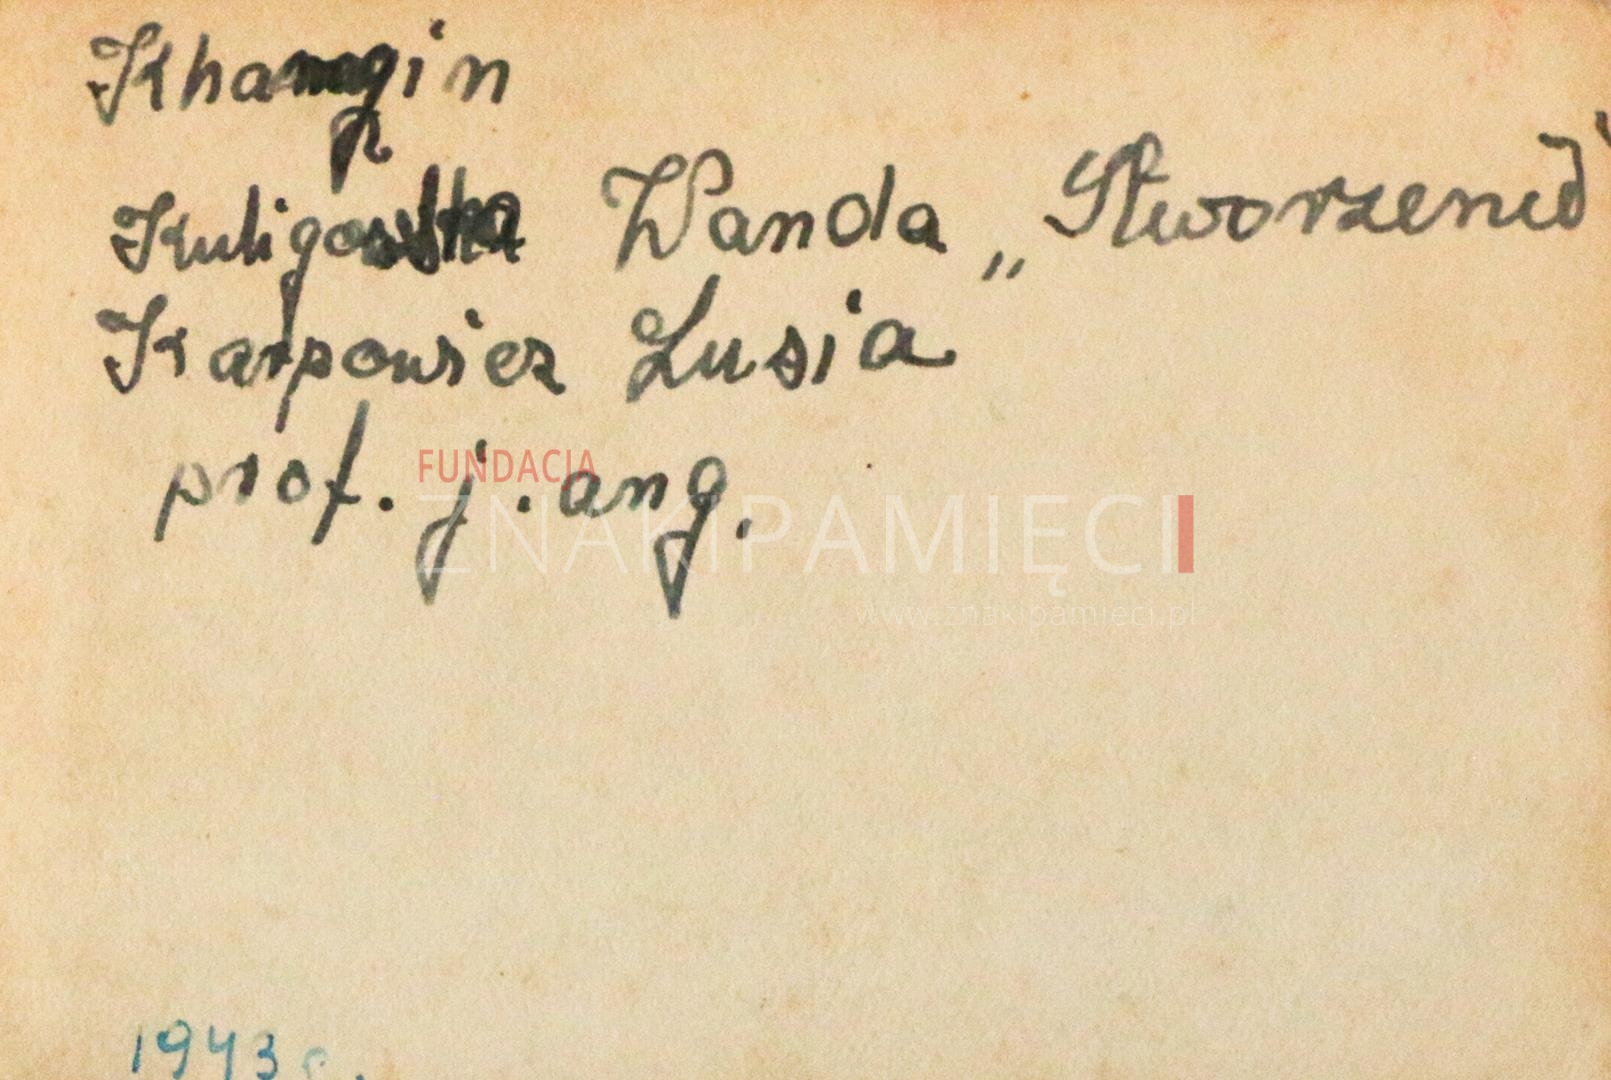 Khangin
Kuligowska Wanda „Stworzenie"
Karpowicz Lusia
prof. j. ang.
FUNDACJA
ZNAKIPAMIĘCI
www.znakipamieci.pl
1943 r.